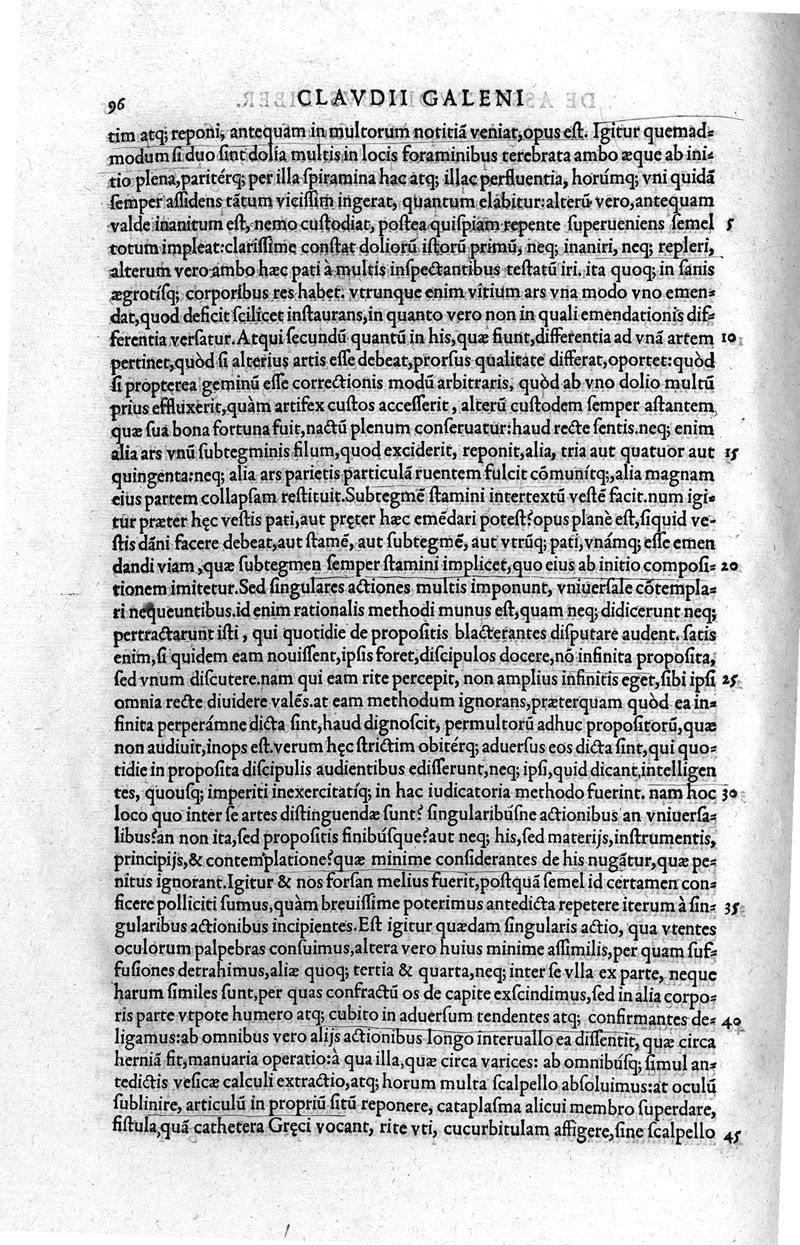 96 CLAVDII GALENI
tim atq; reponi, antequam in multorum notitiā veniat,opus eſt. Igitur quemad-
modum ſi duo ſint dolia multis in locis foraminibus terebrata ambo æque ab ini-
tio plena,paritérq; per illa ſpiramina hac atq; illac perfluentia, horúmq; vni quidā
ſemper aſſidens tātum viciſſim ingerat, quantum elābitur:alterū vero,antequam
valde inanitum eſt, nemo cuſtodiat, poſtea quiſpiam repente ſuperueniens ſemel 5
totum impleat:clariſſime conſtat doliorū iſtorū primū, neq; inaniri, neq; repleri,
alterum vero ambo hæc pati à multis inſpectantibus teſtatū iri. ita quoq; in ſanis
ægrotíſq; corporibus res habet. vtrunque enim vitium ars vna modo vno emen-
dat,quod deficit ſcilicet inſtaurans,in quanto vero non in quali emendationis dif-
ferentia verſatur.Atqui ſecundū quantū in his,quæ fiunt,differentia ad vnā artem 10
pertinet,quòd ſi alterius artis eſſe debeat,prorſus qualitate differat,oportet:quòd
ſi propterea geminū eſſe correctionis modū arbitraris, quòd ab vno dolio multū
prius effluxerit,quàm artifex cuſtos acceſſerit, alterū cuſtodem ſemper aſtantem,
quæ ſua bona fortuna fuit,nactū plenum conſeruatur:haud recte ſentis.neq; enim
alia ars vnū ſubtegminis filum,quod exciderit, reponit,alia, tria aut quatuor aut 15
quingenta:neq; alia ars parietis particulā ruentem fulcit cōmunítq;,alia magnam
eius partem collapſam reſtituit.Subtegmē ſtamini intertextū veſtē facit.num igi-
tur præter hęc veſtis pati,aut pręter hæc emēdari poteſt?opus planè eſt,ſiquid ve-
ſtis dāni facere debeat,aut ſtamē, aut ſubtegmē, aut vtrūq; pati,vnámq; eſſe emen
dandi viam,quæ ſubtegmen ſemper ſtamini implicet,quo eius ab initio compoſi- 20
tionem imitetur.Sed ſingulares actiones multis imponunt, vniuerſale cōtempla-
ri nequeuntibus.id enim rationalis methodi munus eſt,quam neq; didicerunt neq;
pertractarunt iſti, qui quotidie de propoſitis blacterantes diſputare audent. ſatis
enim,ſi quidem eam nouiſſent,ipſis foret,diſcipulos docere,nō infinita propoſita,
ſed vnum diſcutere.nam qui eam rite percepit, non amplius infinitis eget,ſibi ipſi 25
omnia recte diuidere valēs.at eam methodum ignorans,præterquam quòd ea in-
finita perperámne dicta ſint,haud dignoſcit, permultorū adhuc propoſitorū,quæ
non audiuit,inops eſt.verum hęc ſtrictim obitérq; aduerſus eos dicta ſint,qui quo-
tidie in propoſita diſcipulis audientibus ediſſerunt,neq; ipſi,quid dicant,intelligen
tes, quouſq; imperiti inexercitatíq; in hac iudicatoria methodo fuerint. nam hoc 30
loco quo inter ſe artes diſtinguendæ ſunt? ſingularibúſne actionibus an vniuerſa-
libus?an non ita,ſed propoſitis finibúſque?aut neq; his,ſed materijs,inſtrumentis,
principijs,& contemplatione?quæ minime conſiderantes de his nugātur,quæ pe-
nitus ignorant.Igitur & nos forſan melius fuerit,poſtquā ſemel id certamen con-
ficere polliciti ſumus,quàm breuiſſime poterimus antedicta repetere iterum à ſin- 35
gularibus actionibus incipientes.Eſt igitur quædam ſingularis actio, qua vtentes
oculorum palpebras conſuimus,altera vero huius minime aſſimilis,per quam ſuf-
fuſiones detrahimus,aliæ quoq; tertia & quarta,neq; inter ſe vlla ex parte, neque
harum ſimiles ſunt,per quas confractū os de capite exſcindimus,ſed in alia corpo-
ris parte vtpote humero atq; cubito in aduerſum tendentes atq; confirmantes de- 40
ligamus:ab omnibus vero alijs actionibus longo interuallo ea diſſentit, quæ circa
herniā fit,manuaria operatio:à qua illa,quæ circa varices: ab omnibúſq; ſimul an-
tedictis veſicæ calculi extractio,atq; horum multa ſcalpello abſoluimus:at oculū
ſublinire, articulū in propriū ſitū reponere, cataplaſma alicui membro ſuperdare,
fiſtula,quā cathetera Gręci vocant, rite vti, cucurbitulam affigere,ſine ſcalpello 45